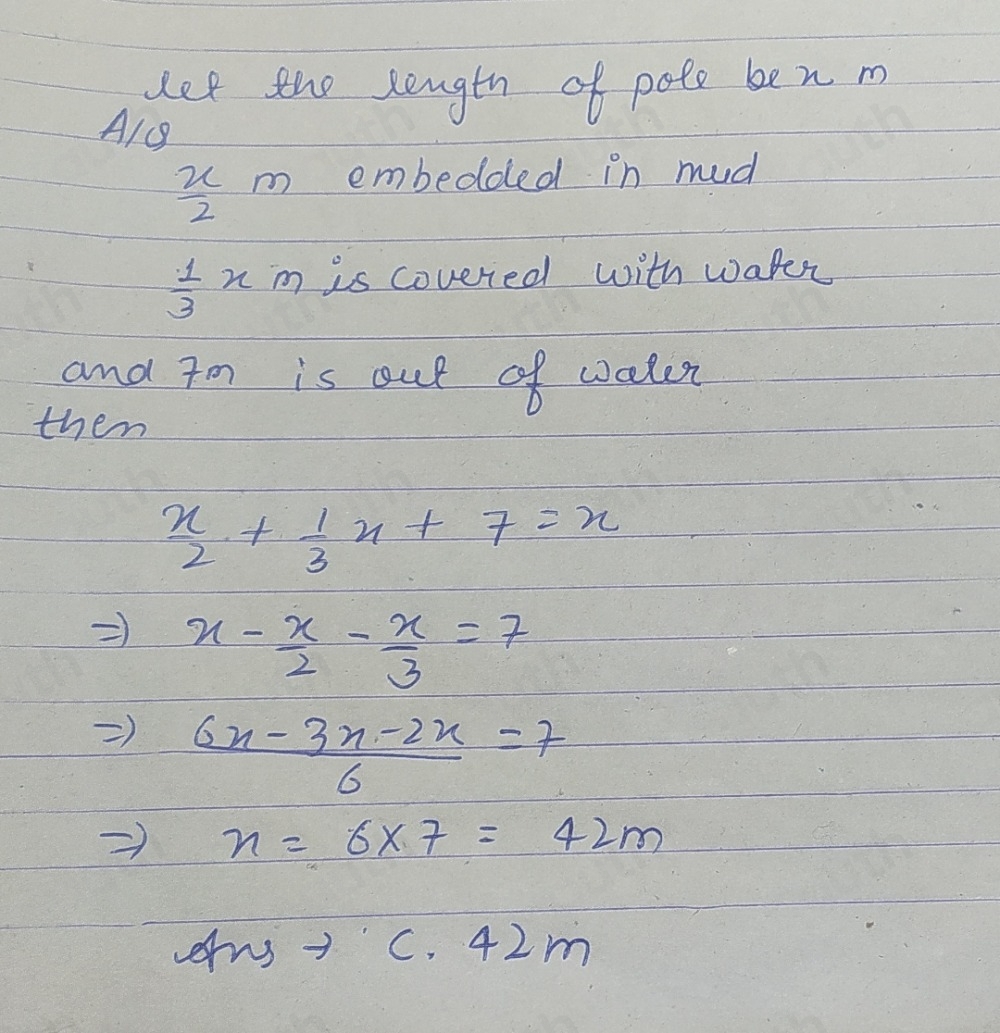 let the length of pole be x m
A/Q
x/2 m embedded in mud
1/3 x m is covered with water
and 7m is out of water
then
x/2 + 1/3 x + 7 = x
=> x - x/2 - x/3 = 7
=> (6x - 3x - 2x)/6 = 7
=> x = 6 × 7 = 42m
Ans → C. 42m